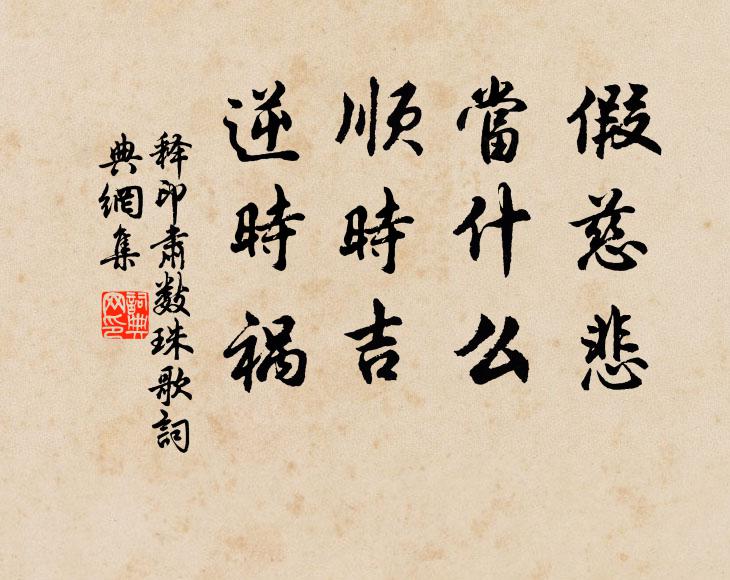 假慈悲
當什么
順時吉
逆時祸
释印肅数珠歌詞
典網集
詞典网印